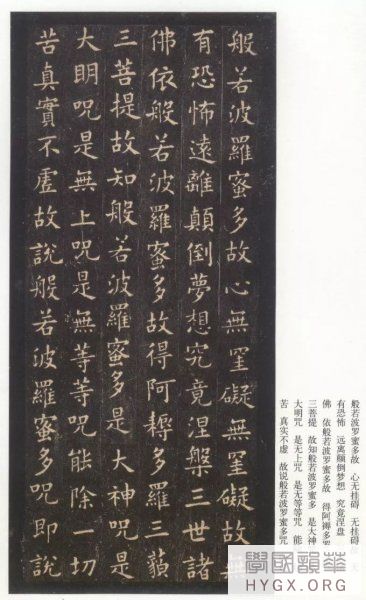 般若波羅蜜多故心無罣礙無罣礙故無
有恐怖遠離顛倒夢想究竟涅槃三世諸
佛依般若波羅蜜多故得阿耨多羅三藐
三菩提故知般若波羅蜜多是大神呪是
大明呪是無上呪是無等等呪能除一切
苦真實不虛故說般若波羅蜜多呪即說
般若波罗蜜多故 心无挂碍 无挂碍
有恐怖 远离颠倒梦想 究竟涅盘
佛 依般若波罗蜜多故 得阿耨多罗
三菩提 故知般若波罗蜜多 是大神
大明咒 是无上咒 是无等等咒 能
苦 真实不虚 故说般若波罗蜜多咒
學國韻華
HYGX.ORG